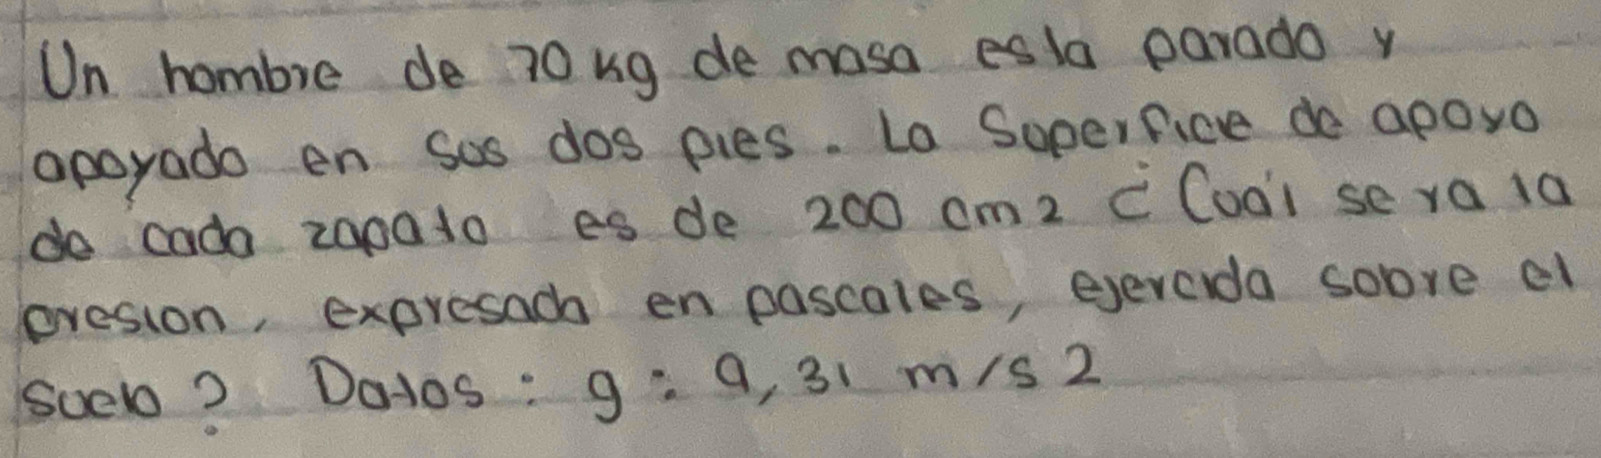 Un hombre de 70 kg de masa esta parado y
apoyado en sus dos pies. La Superficie de apoyo
de cada zapato es de 200 cm2 ¿Cuál se ra la
presion, expresada en pascales, ejercida sobre el
suelo? Datos: g: 9,31 m/s2